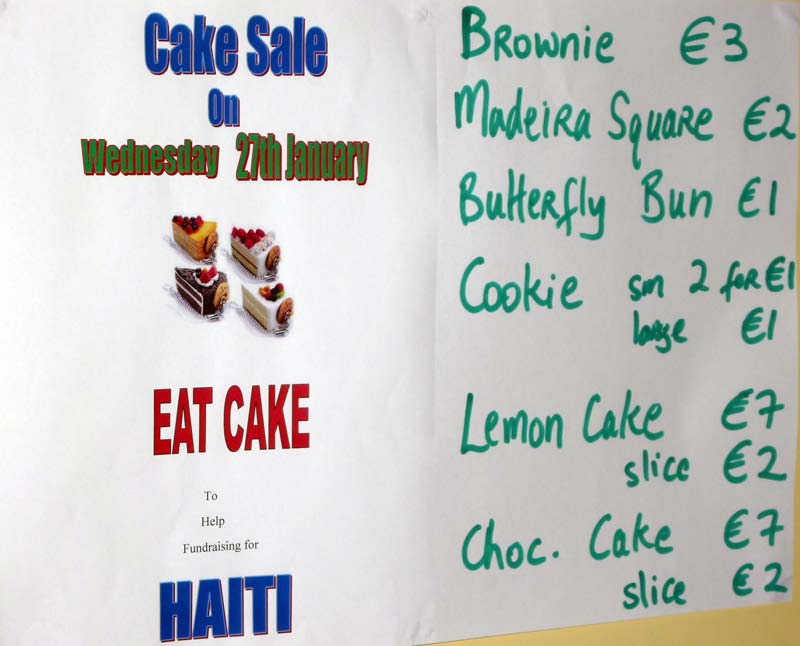 Cake Sale
On
Wednesday 27th January
EAT CAKE
To
Help
Fundraising for
HAITI
Brownie €3
Madeira Square €2
Butterfly Bun €1
Cookie sm 2 for €1
large €1
Lemon Cake €7
slice €2
Choc. Cake €7
slice €2